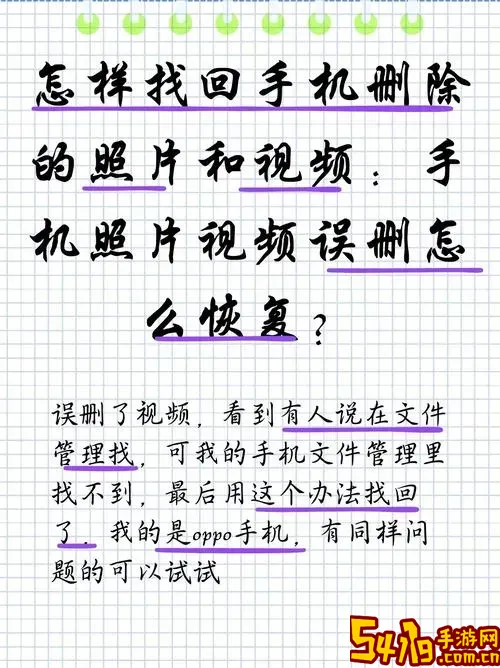 怎样找回手机删除
的照片和视频：手
机照片视频误删怎
么恢复？
误删了视频，看到有人说在文件
管理找，可我的手机文件管理里
找不到，最后用这个办法找回
了．我的是oppo手机，有同样问
题的可以试试
5419手游网
.com.cn